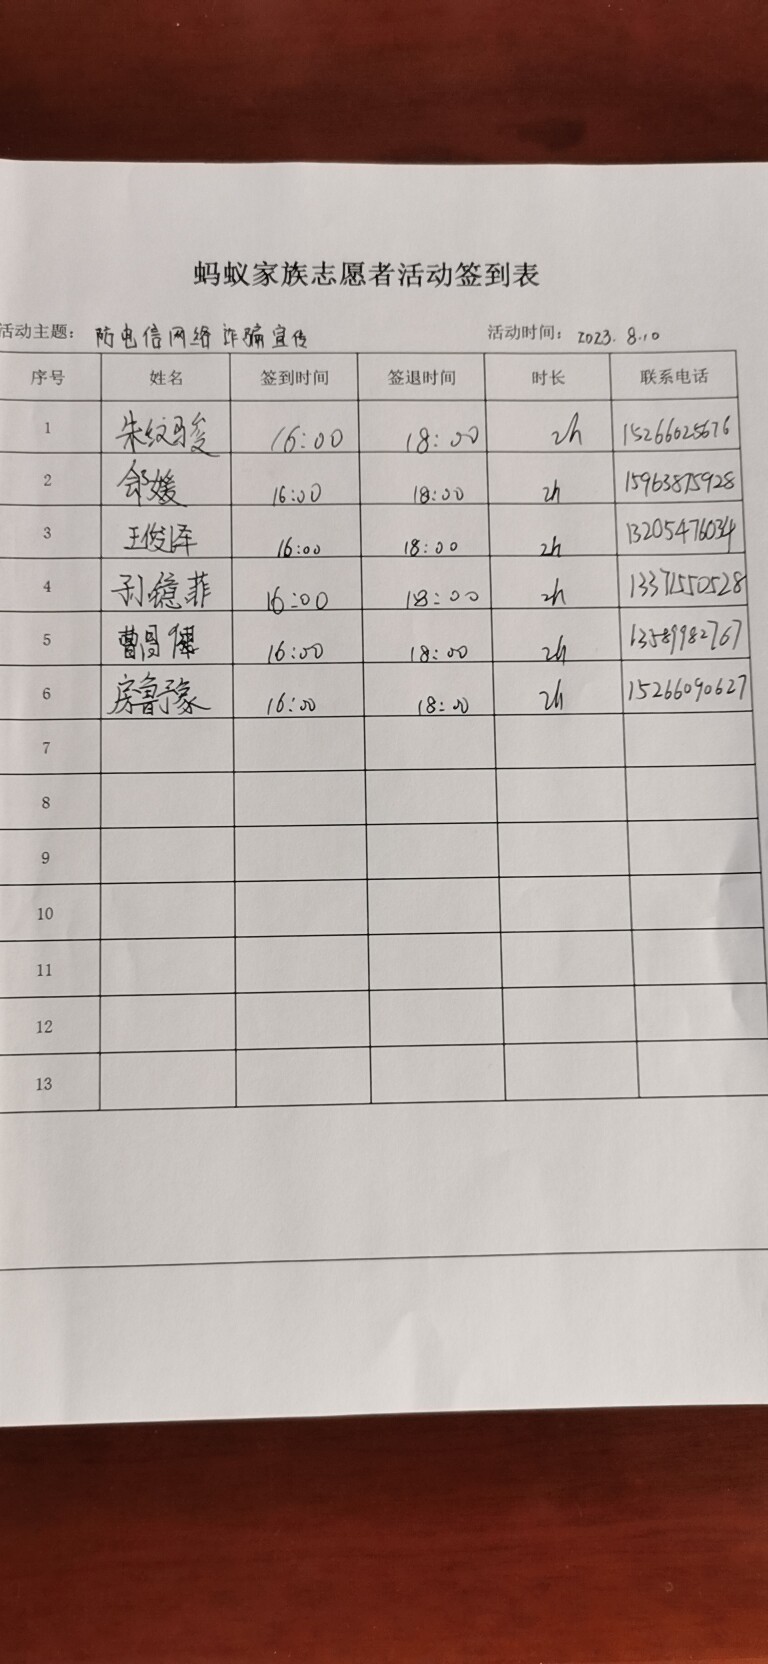 蚂蚁家族志愿者活动签到表
活动主题: 防电信网络诈骗宣传 活动时间: 2023.8.10
序号 姓名 签到时间 签退时间 时长 联系电话
1 朱纹骏 16:00 18:00 2h 15266025676
2 邰媛 16:00 18:00 2h 15963875928
3 王俊泽 16:00 18:00 2h 13205476034
4 孙镜菲 16:00 18:00 2h 13371550528
5 曹昌健 16:00 18:00 2h 13589982767
6 房鲁豫 16:00 18:00 2h 15266090627
7
8
9
10
11
12
13